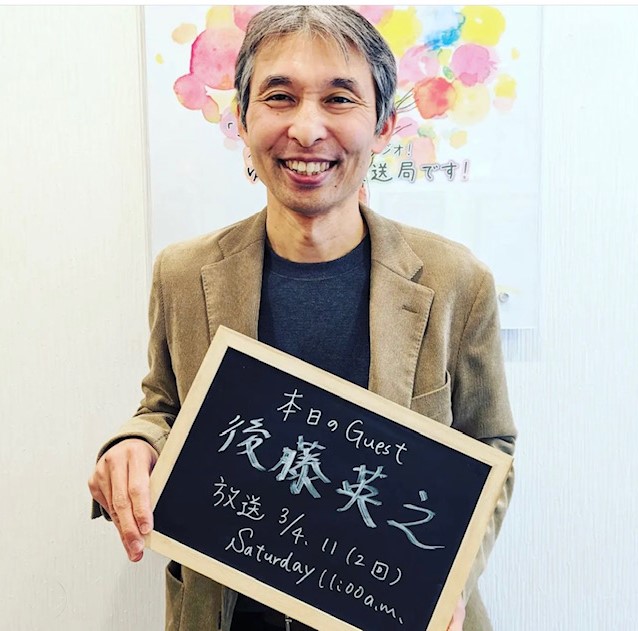 ジオ!
送局です!
本日のGuest
後藤英之
放送 3/4, 11 (2回)
Saturday 11:00a.m.